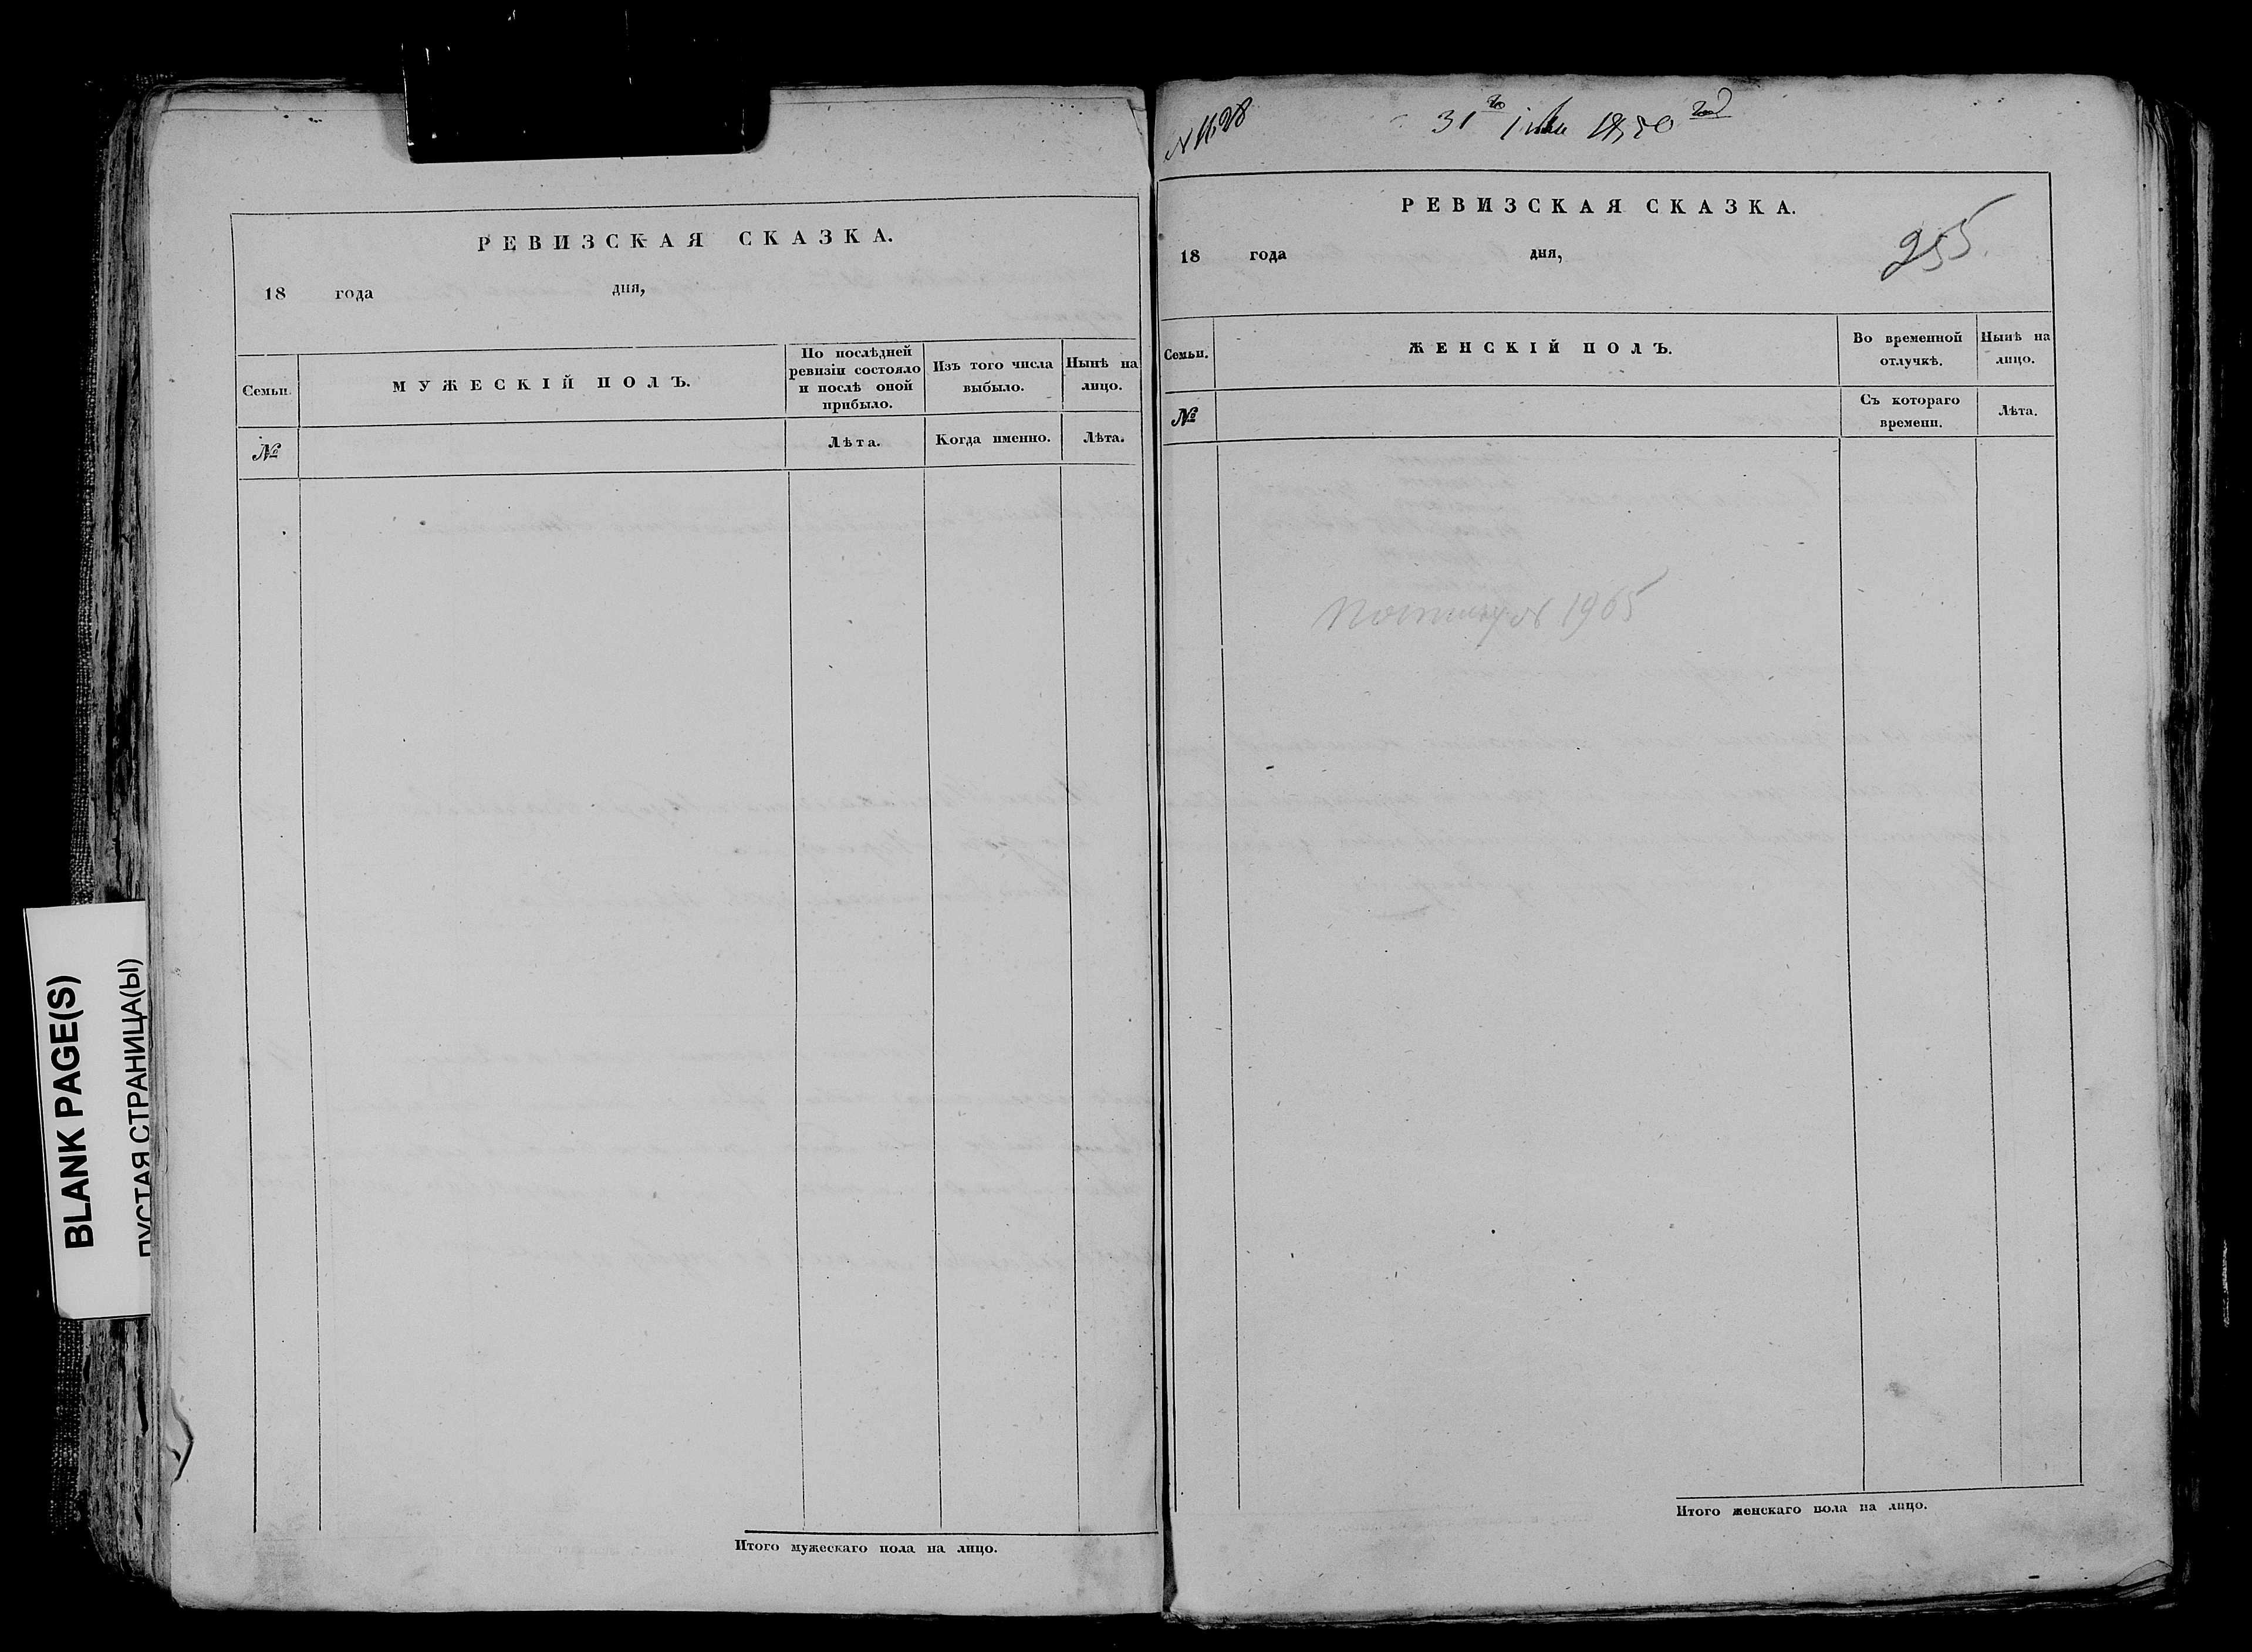 BLANK PAGE(S)
ПУСТАЯ СТРАНИЦА(Ы)
РЕВИЗСКАЯ СКАЗКА.
18 года дня,
Семьи.
МУЖЕСКІЙ ПОЛЪ.
По послѣдней
ревизіи состояло
и послѣ оной
прибыло.
Изъ того числа
выбыло.
Нынѣ на
лицо.
№
Лѣта.
Когда именно.
Лѣта.
Итого мужескаго пола на лицо.
31го 1850 год
РЕВИЗСКАЯ СКАЗКА.
255
18 года дня,
Семьи.
ЖЕНСКІЙ ПОЛЪ.
Во временной
отлучкѣ.
Нынѣ на
лицо.
№
Съ котораго
времени.
Лѣта.
1965
Итого женскаго пола на лицо.